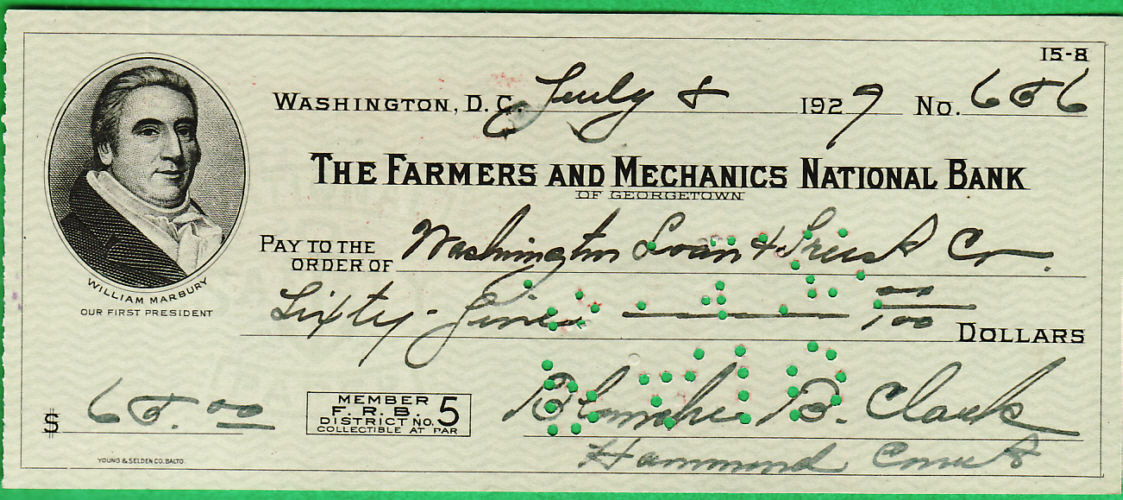 15-8
WASHINGTON, D.C. July 8 1929 No. 656
THE FARMERS AND MECHANICS NATIONAL BANK
OF GEORGETOWN
PAY TO THE ORDER OF Washington Loan & Trust Co.
Sixty-five 00/100 DOLLARS
WILLIAM MARBURY
OUR FIRST PRESIDENT
$ 65.00
MEMBER
F. R. B.
DISTRICT NO. 5
COLLECTIBLE AT PAR
Blanche B. Clark
Hammond Court
YOUNG & SELDEN CO. BALTO.